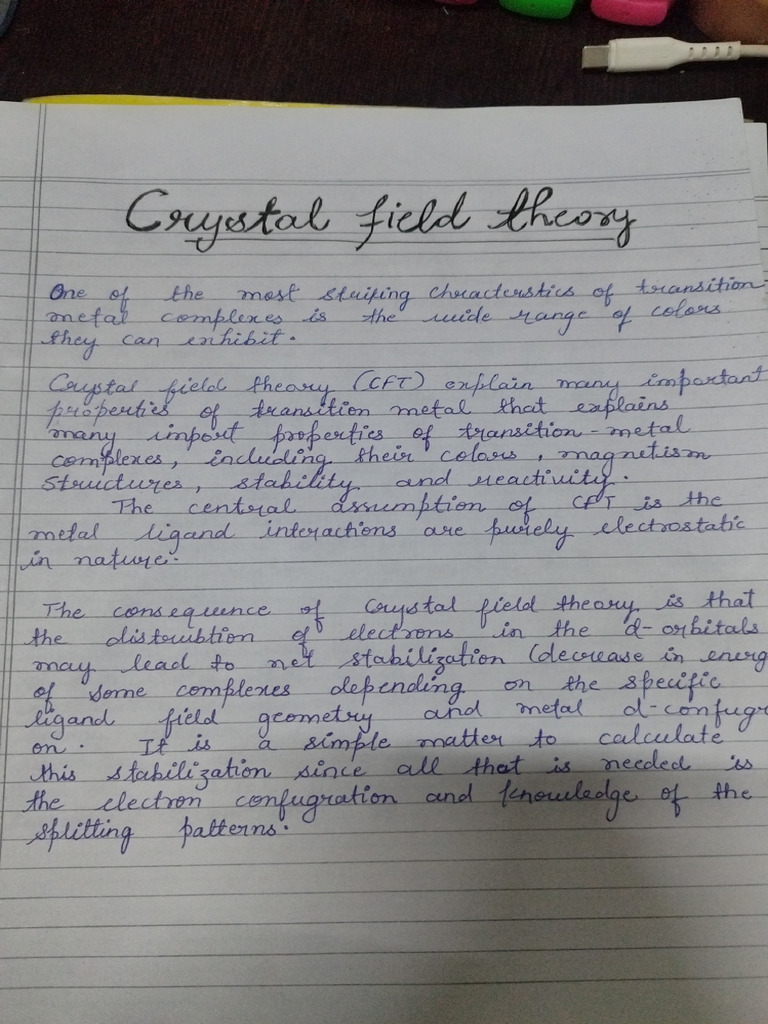 Crystal field theory
One of the most striking chracterstics of transition
metal complexes is the wide range of colors
they can exhibit.
Crystal field theory (CFT) explain many important
properties of transition metal that explains
many import properties of transition-metal
complexes, including their colors, magnetism
structures, stability and reactivity.
The central assumption of CFT is the
metal ligand interactions are purely electrostatic
in nature.
The consequence of Crystal field theory is that
the distrubtion of electrons in the d-orbitals
may lead to net stabilization (decrease in energ
of some complexes depending on the specific
ligand field geometry and metal d-confugr
on. It is a simple matter to calculate
this stabilization since all that is needed is
the electron confugration and knowledge of the
splitting patterns.